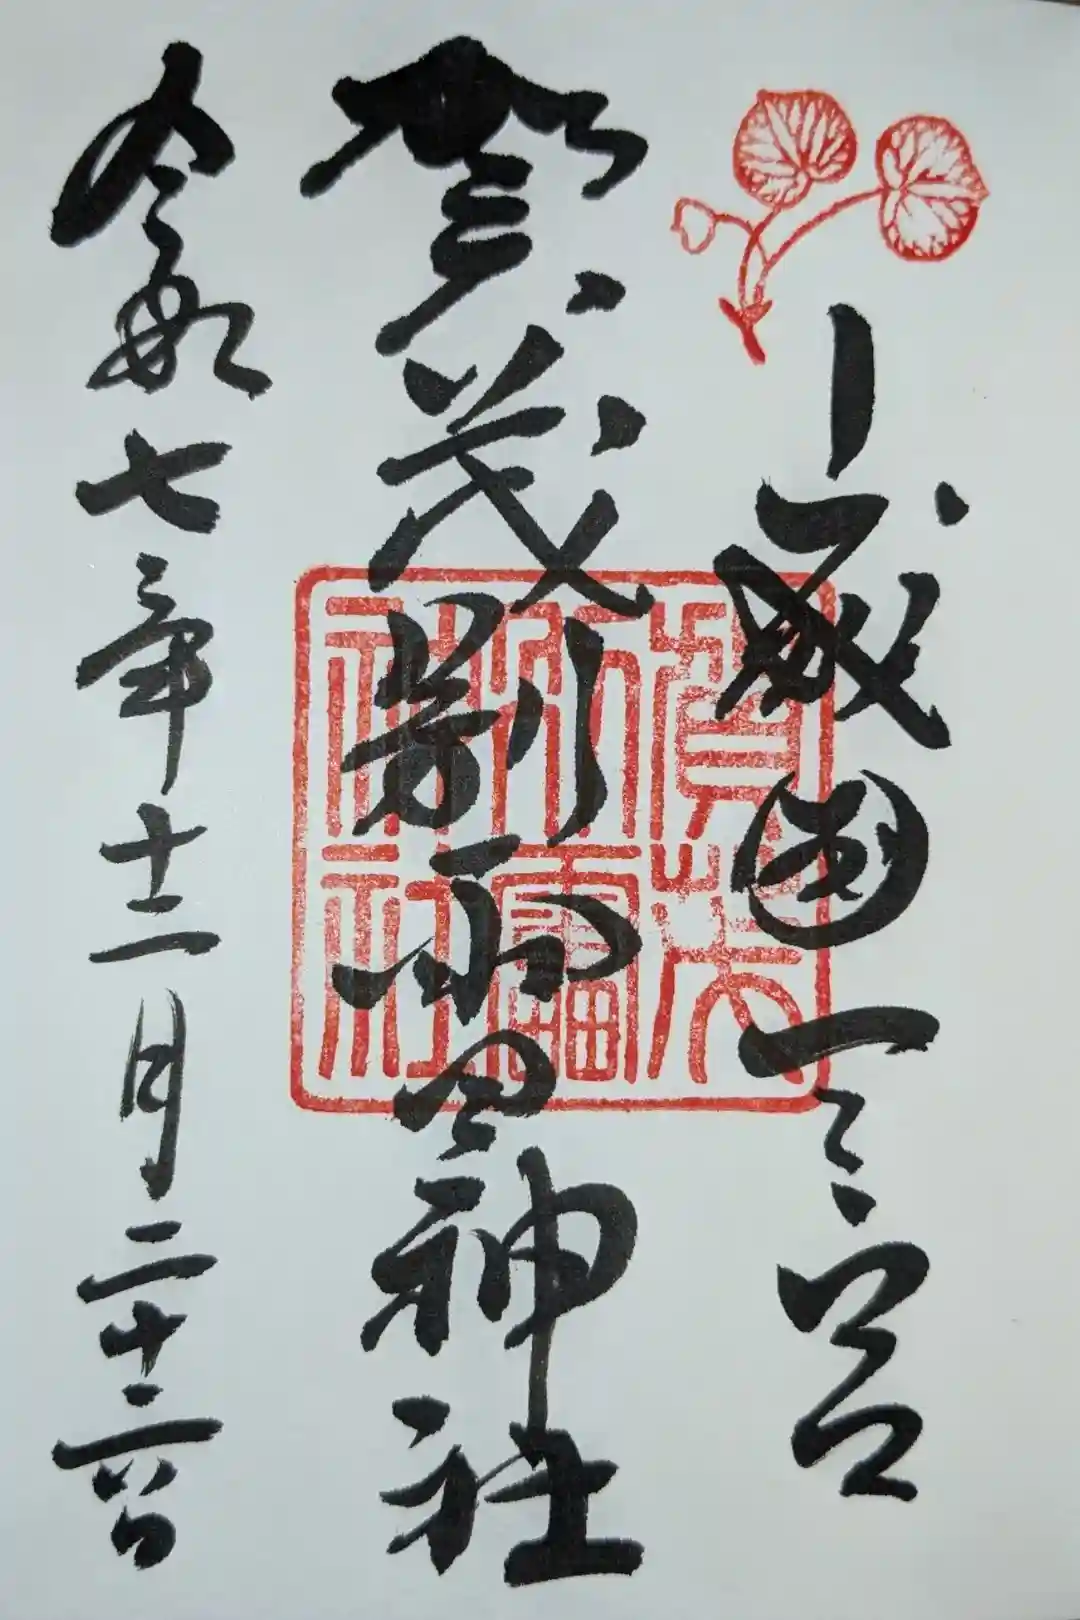 山城国一之宮
賀茂別雷神社
令和七年十二月二十六日
賀茂
別雷
神社